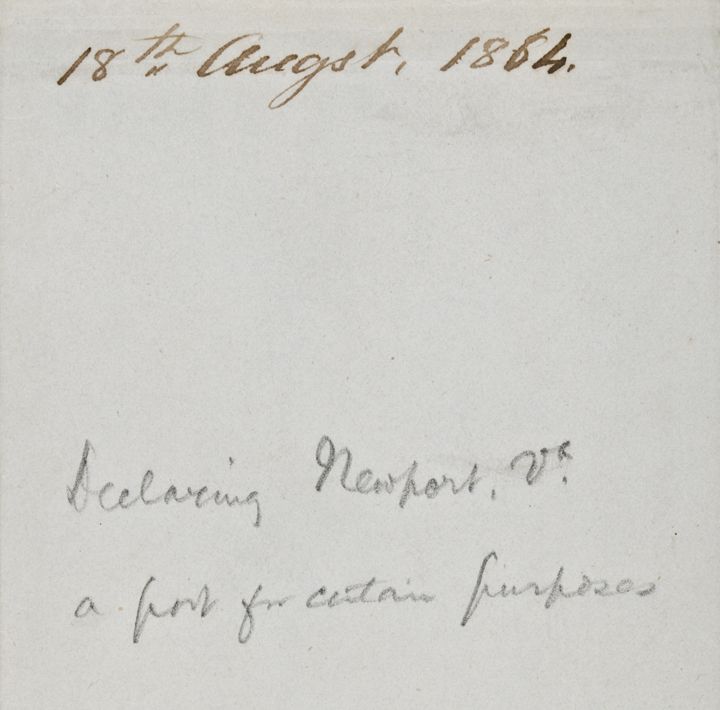 18th Augst, 1864.
Declaring Newport, Vt.
a port for certain purposes